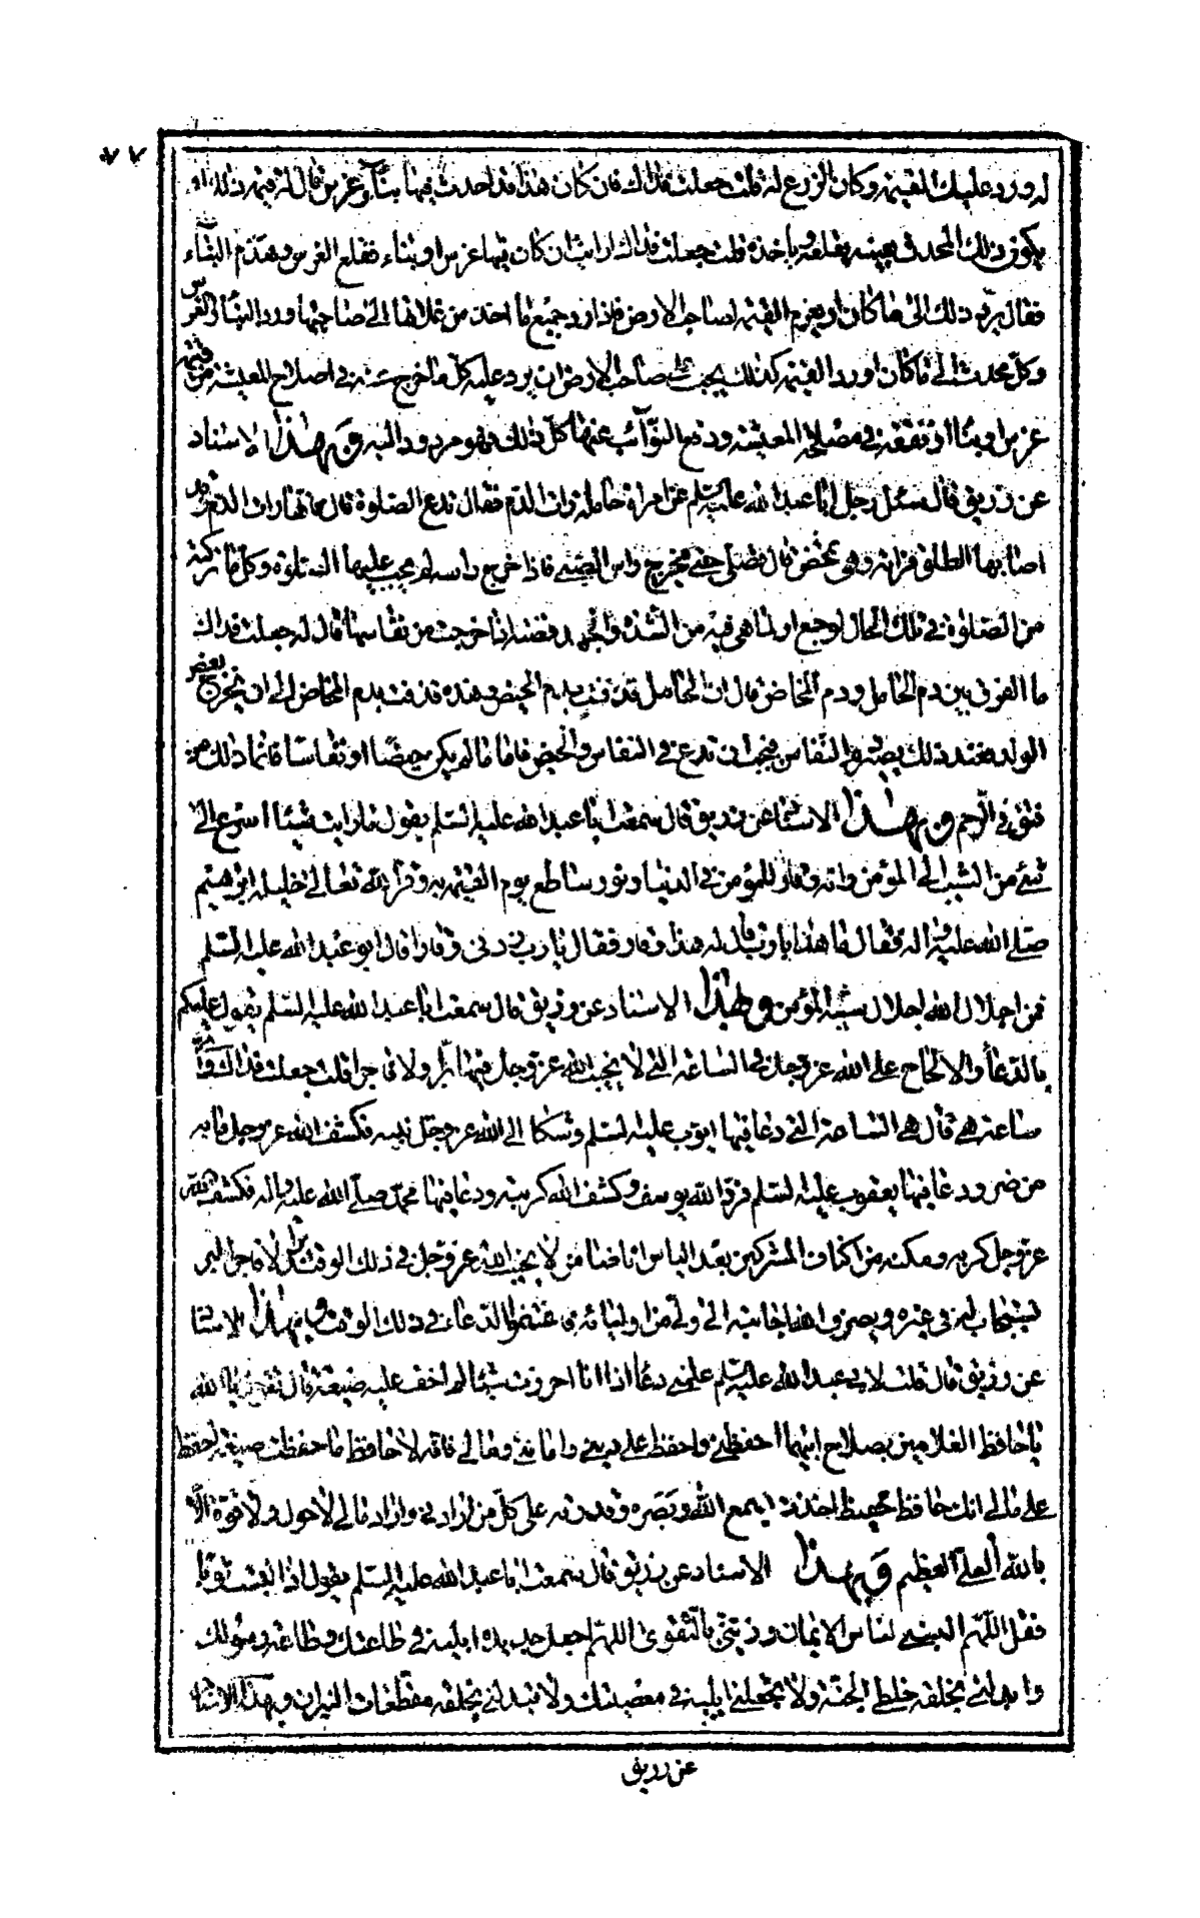 ٧٧
له ورد عليك القيمة وكان الزرع له قلت جعلت فداك فان كان هذا قد احدث فيها بناء وغرس قال له قيمة ذلك او
يكون ذلك المحدث بعينه يقلعه وياخذه قلت جعلت فداك ارايت ان كان فيها غرس او بناء فقلع الغرس وهدم البناء
فقال يرد ذلك الى ما كان او يغرم القيمة لصاحب الارض فاذا رد جميع ما اخذ من غلاتها الى صاحبها ورد البناء والغرس
وكل محدث الى ما كان او رد القيمة كذلك يجب على صاحب الارض ان يرد عليه كل ما خرج عنه في اصلاح المعيشة من قيمة
غرس او بناء او نفقة في مصلحة المعيشة ودفع النوائب عنها كل ذلك فهو مردود اليه وبهذا الاسناد
عن زريق قال سئل رجل ابا عبد الله عليه السلم عن امراة حاملة رات الدم فقال تدع الصلوة قال فانها رات الدم وقد
اصابها الطلق فراته وهي تمخض قال تصلي حتى يخرج راس الصبي فاذا خرج راسه لم يجب عليها الصلوة وكل ما تركته
من الصلوة في تلك الحال لوجع او لما هي فيه من الشدة والجهد قضته اذا خرجت من نفاسها قال له جعلت فداك
ما الفرق بين دم الحامل ودم المخاض قال ان الحامل قذفت بدم الحيض وهذه قذفت بدم المخاض الى ان يخرج بعض
الولد فعند ذلك يصير دم النفاس فيجب ان تدع في النفاس والحيض فاما ما لم يكن حيضا او نفاسا فانما ذلك من
فتق في الرحم وبهذا الاسناد عن زريق قال سمعت ابا عبد الله عليه السلم يقول ما رايت شيئا اسرع الى
شيء من الشيب الى المؤمن وانه وقار للمؤمن في الدنيا ونور ساطع يوم القيمة به وقر الله تعالى خليله ابرهيم
صلى الله عليه واله فقال ما هذا يا رب قال له هذا وقار فقال يا رب زدني وقارا قال ابو عبد الله عليه السلم
فمن اجلال الله اجلال شيبة المؤمن وبهذا الاسناد عن زريق قال سمعت ابا عبد الله عليه السلم يقول عليكم
بالدعاء والالحاح على الله عز وجل في الساعة التي لا يخيب الله عز وجل فيها برا ولا فاجرا قلت جعلت فداك واية
ساعة هي قال هي الساعة التي دعا فيها ايوب عليه السلم وشكا الى الله عز وجل بليته فكشف الله عز وجل ما به
من ضر ودعا فيها يعقوب عليه السلم فرد الله يوسف وكشف الله كربته ودعا فيها محمد صلى الله عليه واله فكشف الله
عز وجل كربه ومكنه من اكتاف المشركين بعد الياس انا ضامن لا يخيب الله عز وجل في ذلك الوقت برا ولا فاجرا البر
يستجاب له في نفسه وغيره ويصرف الله اجابته الى ولي من اوليائه فاغتنموا الدعاء في ذلك الوقت وبهذا الاسناد
عن زريق قال قلت لابي عبد الله عليه السلم علمني دعاء اذا انا احرزت شيئا لم اخف عليه ضيعة قال تقول يا الله
يا حافظ الغلامين بصلاح ابيهما احفظني واحفظ على ديني وامانتي ومالي فانه لا حافظ ما حفظت ضيعة احفظ
على مالي انك حافظ حفيظ اخذت بسمع الله وبصره وقدرته على كل من ارادني واراد مالي لا حول ولا قوة الا
بالله العلي العظيم وبهذا الاسناد عن زريق قال سمعت ابا عبد الله عليه السلم يقول اذا لبست ثوبا
فقل اللهم البسني لباس الايمان وزيني بالتقوى اللهم اجعل جديده ابليه في طاعتك وطاعة رسولك
وابدلني بخلقه حلل الجنة ولا تجعلني ابليه في معصيتك ولا تبدلني بخلقه مقطعات النيران وبهذا الاسناد
عن زريق